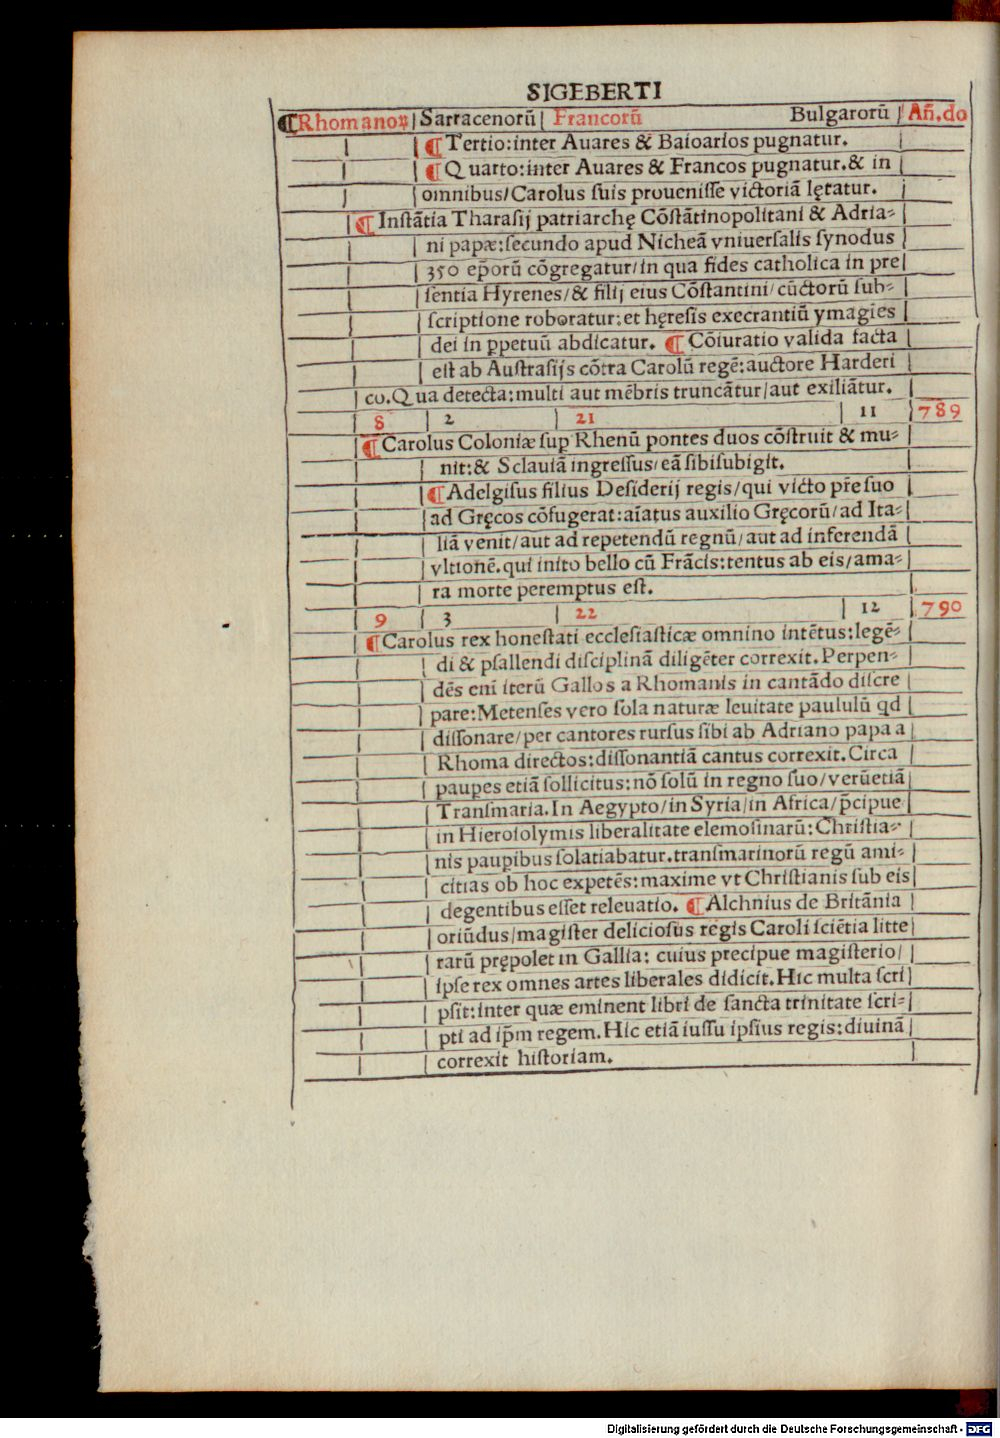 SIGEBERTI
¶Rhomanoꝝ Sarracenorū Francorū Bulgarorū Añ.do
¶Tertio:inter Auares & Baioarios pugnatur.
¶Quarto:inter Auares & Francos pugnatur.& in
omnibus/Carolus suis prouenisse victoriā lętatur.
¶Instātia Tharasij patriarchę Cōstātinopolitani & Adria-
ni papæ:secundo apud Nicheā vniuersalis synodus
350 ep̄orū cōgregatur/in qua fides catholica in pre
sentia Hyrenes/& filij eius Cōstantini/cūctorū sub-
scriptione roboratur:et hęresis execrantiū ymagiēs
dei in ꝑpetuū abdicatur. ¶Cōiuratio valida facta
est ab Austrasijs cōtra Carolū regē:auctore Harderi
co.Qua detecta:multi aut mēbris truncātur/aut exiliātur.
8 2 21 11 789
¶Carolus Coloniæ suꝑ Rhenū pontes duos cōstruit & mu-
nit:& Sclauiā ingressus/eā sibisubigit.
¶Adelgisus filius Desiderij regis/qui victo pr̄e suo
ad Gręcos cōfugerat:aīatus auxilio Gręcorū/ad Ita-
liā venit/aut ad repetendū regnū/aut ad inferendā
vltionē.qui inito bello cū Frācis:tentus ab eis/ama-
ra morte peremptus est.
9 3 22 12 790
¶Carolus rex honestati ecclesiasticæ omnino intētus:legē-
di & psallendi disciplinā diligēter correxit.Perpen-
dēs eni iterū Gallos a Rhomanis in cantādo discre
pare:Metenses vero sola naturæ leuitate paululū qd
dissonare/per cantores rursus sibi ab Adriano papa a
Rhoma directos:dissonantiā cantus correxit.Circa
paupes etiā sollicitus:nō solū in regno suo/verūetiā
Transmaria.In Aegypto/in Syria/in Africa/p̄cipue
in Hierosolymis liberalitate elemosinarū:Christia-
nis pauꝑibus solatiabatur.transmarinorū regū ami-
citias ob hoc expetēs:maxime vt Christianis sub eis
degentibus esset releuatio. ¶Alchnius de Britānia
oriūdus/magister deliciosus regis Caroli sciētia litte
rarū prępolet in Gallia: cuius precipue magisterio/
ipse rex omnes artes liberales didicit.Hic multa scri
psit:inter quæ eminent libri de sancta trinitate scri-
pti ad ip̄m regem.Hic etiā iussu ipsius regis:diuinā
correxit historiam.
Digitalisierung gefördert durch die Deutsche Forschungsgemeinschaft - DFG